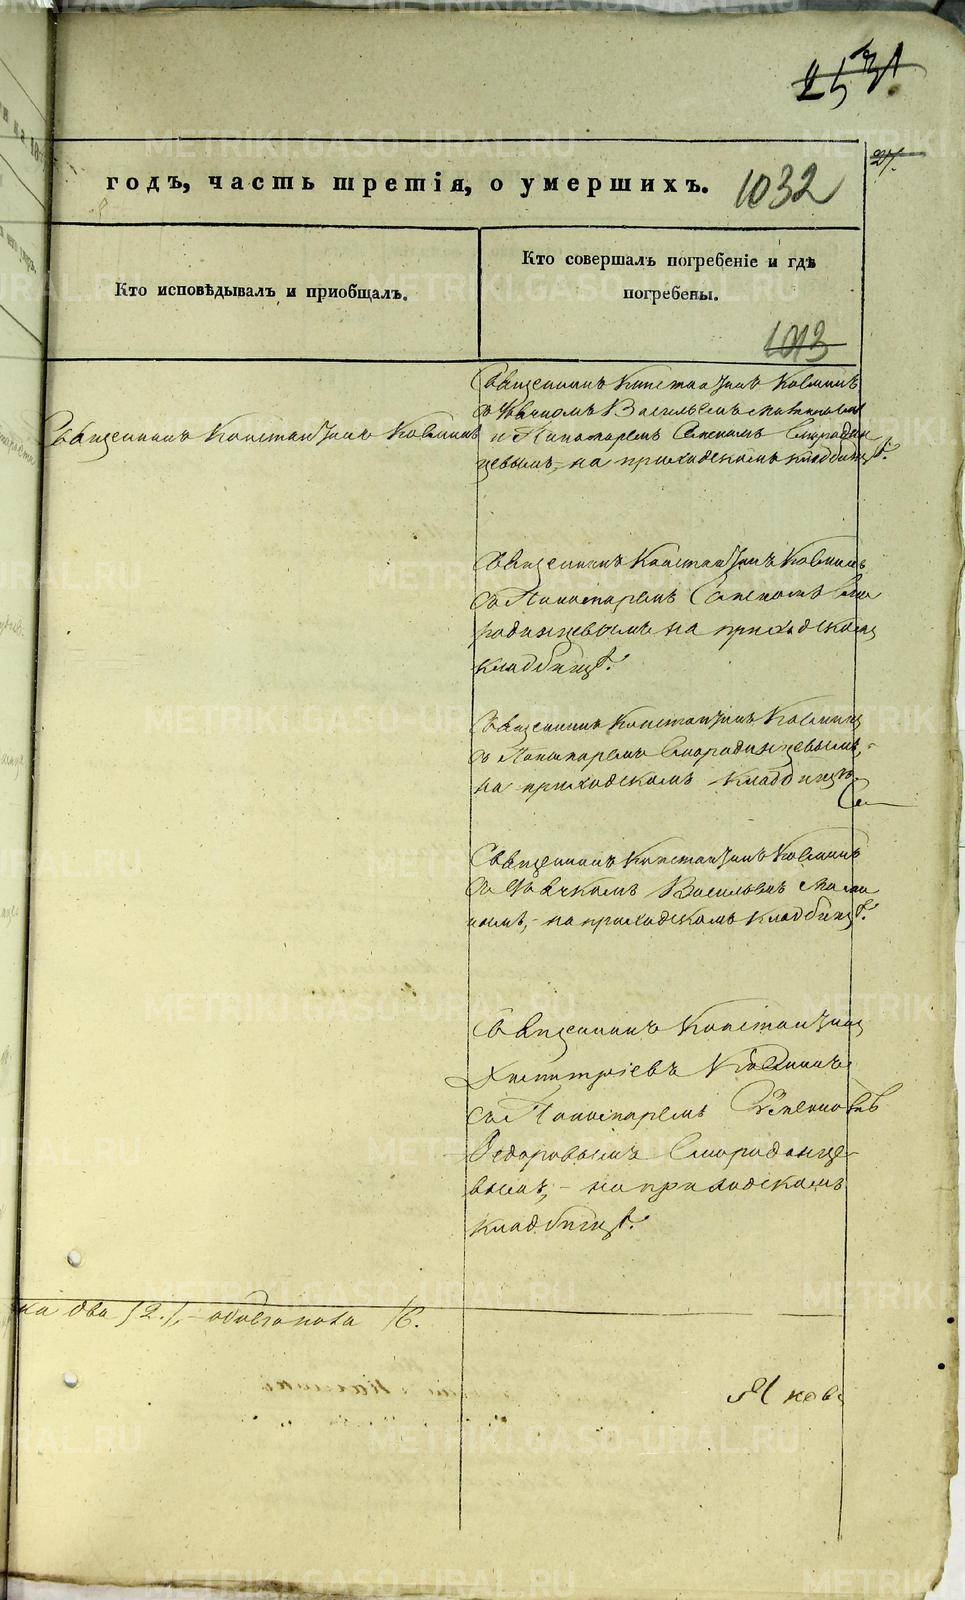 257
31.
27.
годъ, часть третія, о умершихъ.
1032
Кто исповѣдывалъ и приобщалъ.
Кто совершалъ погребеніе и гдѣ
погребены.
1013
Священникъ Константинъ
Священникъ Константинъ
съ Дьячкомъ Васильемъ
и Пономаремъ Семеномъ Смородин
цевымъ, на приходскомъ кладбищѣ.
Священникъ Константинъ
съ Пономаремъ Семеномъ Смо
родинцевымъ на приходскомъ
кладбищѣ.
Священникъ Константинъ
съ Пономаремъ Смородинцевымъ,
на приходскомъ кладбищѣ.
Священникъ Константинъ
съ Дьячкомъ Васильемъ
на приходскомъ кладбищѣ.
Священникъ Константинъ
Димитріевъ
съ Пономаремъ Семеномъ
Ѳедоровымъ Смородинце-
вымъ, - на приходскомъ
кладбищѣ.
на два (2.), - обоего пола 16.
Яковъ
METRIKI.GASO-URAL.RU